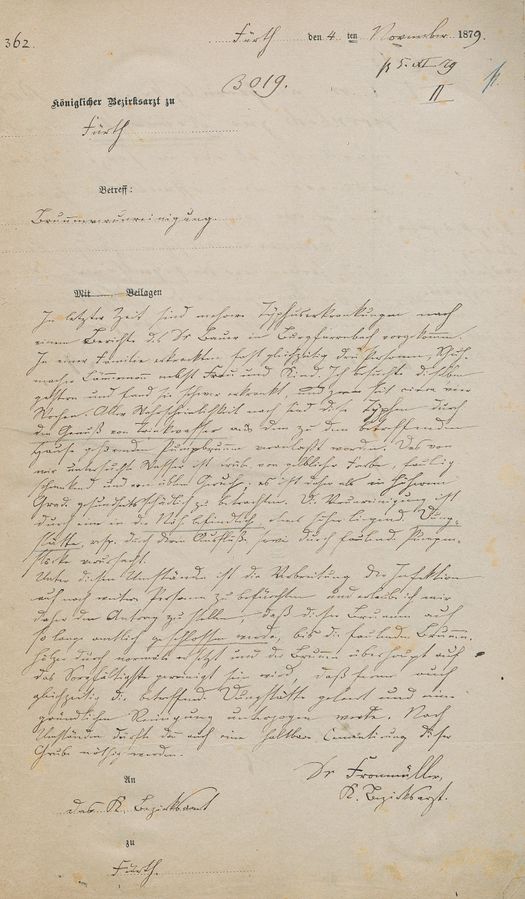 362.
Fürth den 4. ten November 1879.
pr 5. XI 79
3019.
II
Königlicher Bezirksarzt zu
Fürth
Betreff:
Brunnenverunreinigung.
Mit Beilagen
In letzter Zeit sind mehrere Typhuserkrankungen nach
einem Berichte des Dr Bauer in Burgfarrnbach vorgekommen.
In einer Familie erkrankten fast gleichzeitig drei Personen, Schuh-
macher nebst Frau und Kind. Ich besuchte dieselben
gestern und fand sie schwer erkrankt und zwar seit circa vier
Wochen. Aller Wahrscheinlichkeit nach sind diese Typhen durch
den Genuß von Trinkwasser aus dem zu dem betreffenden
Hause gehörenden Pumpbrunnen veranlaßt worden. Das von
mir untersuchte Wasser ist trüb, von gelblicher Farbe, faulig
schmeckend und von üblem Geruch; es ist daher als im höheren
Grad gesundheitsschädlich zu betrachten. Die Verunreinigung ist
durch eine in der Nähe befindliche, etwas höher liegende Dung-
stätte, resp. durch deren Ausfluß sowie durch faulende Pumpen-
stöcke verursacht.
Unter diesen Umständen ist die Verbreitung der Infektion
auf noch weitere Personen zu befürchten und erlaube ich mir
daher den Antrag zu stellen, daß dieser Brunnen auf
so lange amtlich geschlossen werde, bis die faulenden Brunnen-
hölzer durch normale ersetzt und der Brunnen überhaupt auf
das Sorgfältigste gereinigt sein wird, daß ferner auch
gleichzeitig die betreffende Dungstätte geleert und einer
gründlichen Reinigung unterzogen werde. Nach
Umständen dürfte dann auch eine haltbare Cementirung dieser
Grube nöthig werden.
Dr Fronmüller,
K. Bezirksarzt.
An
das K. Bezirksamt
zu
Fürth.